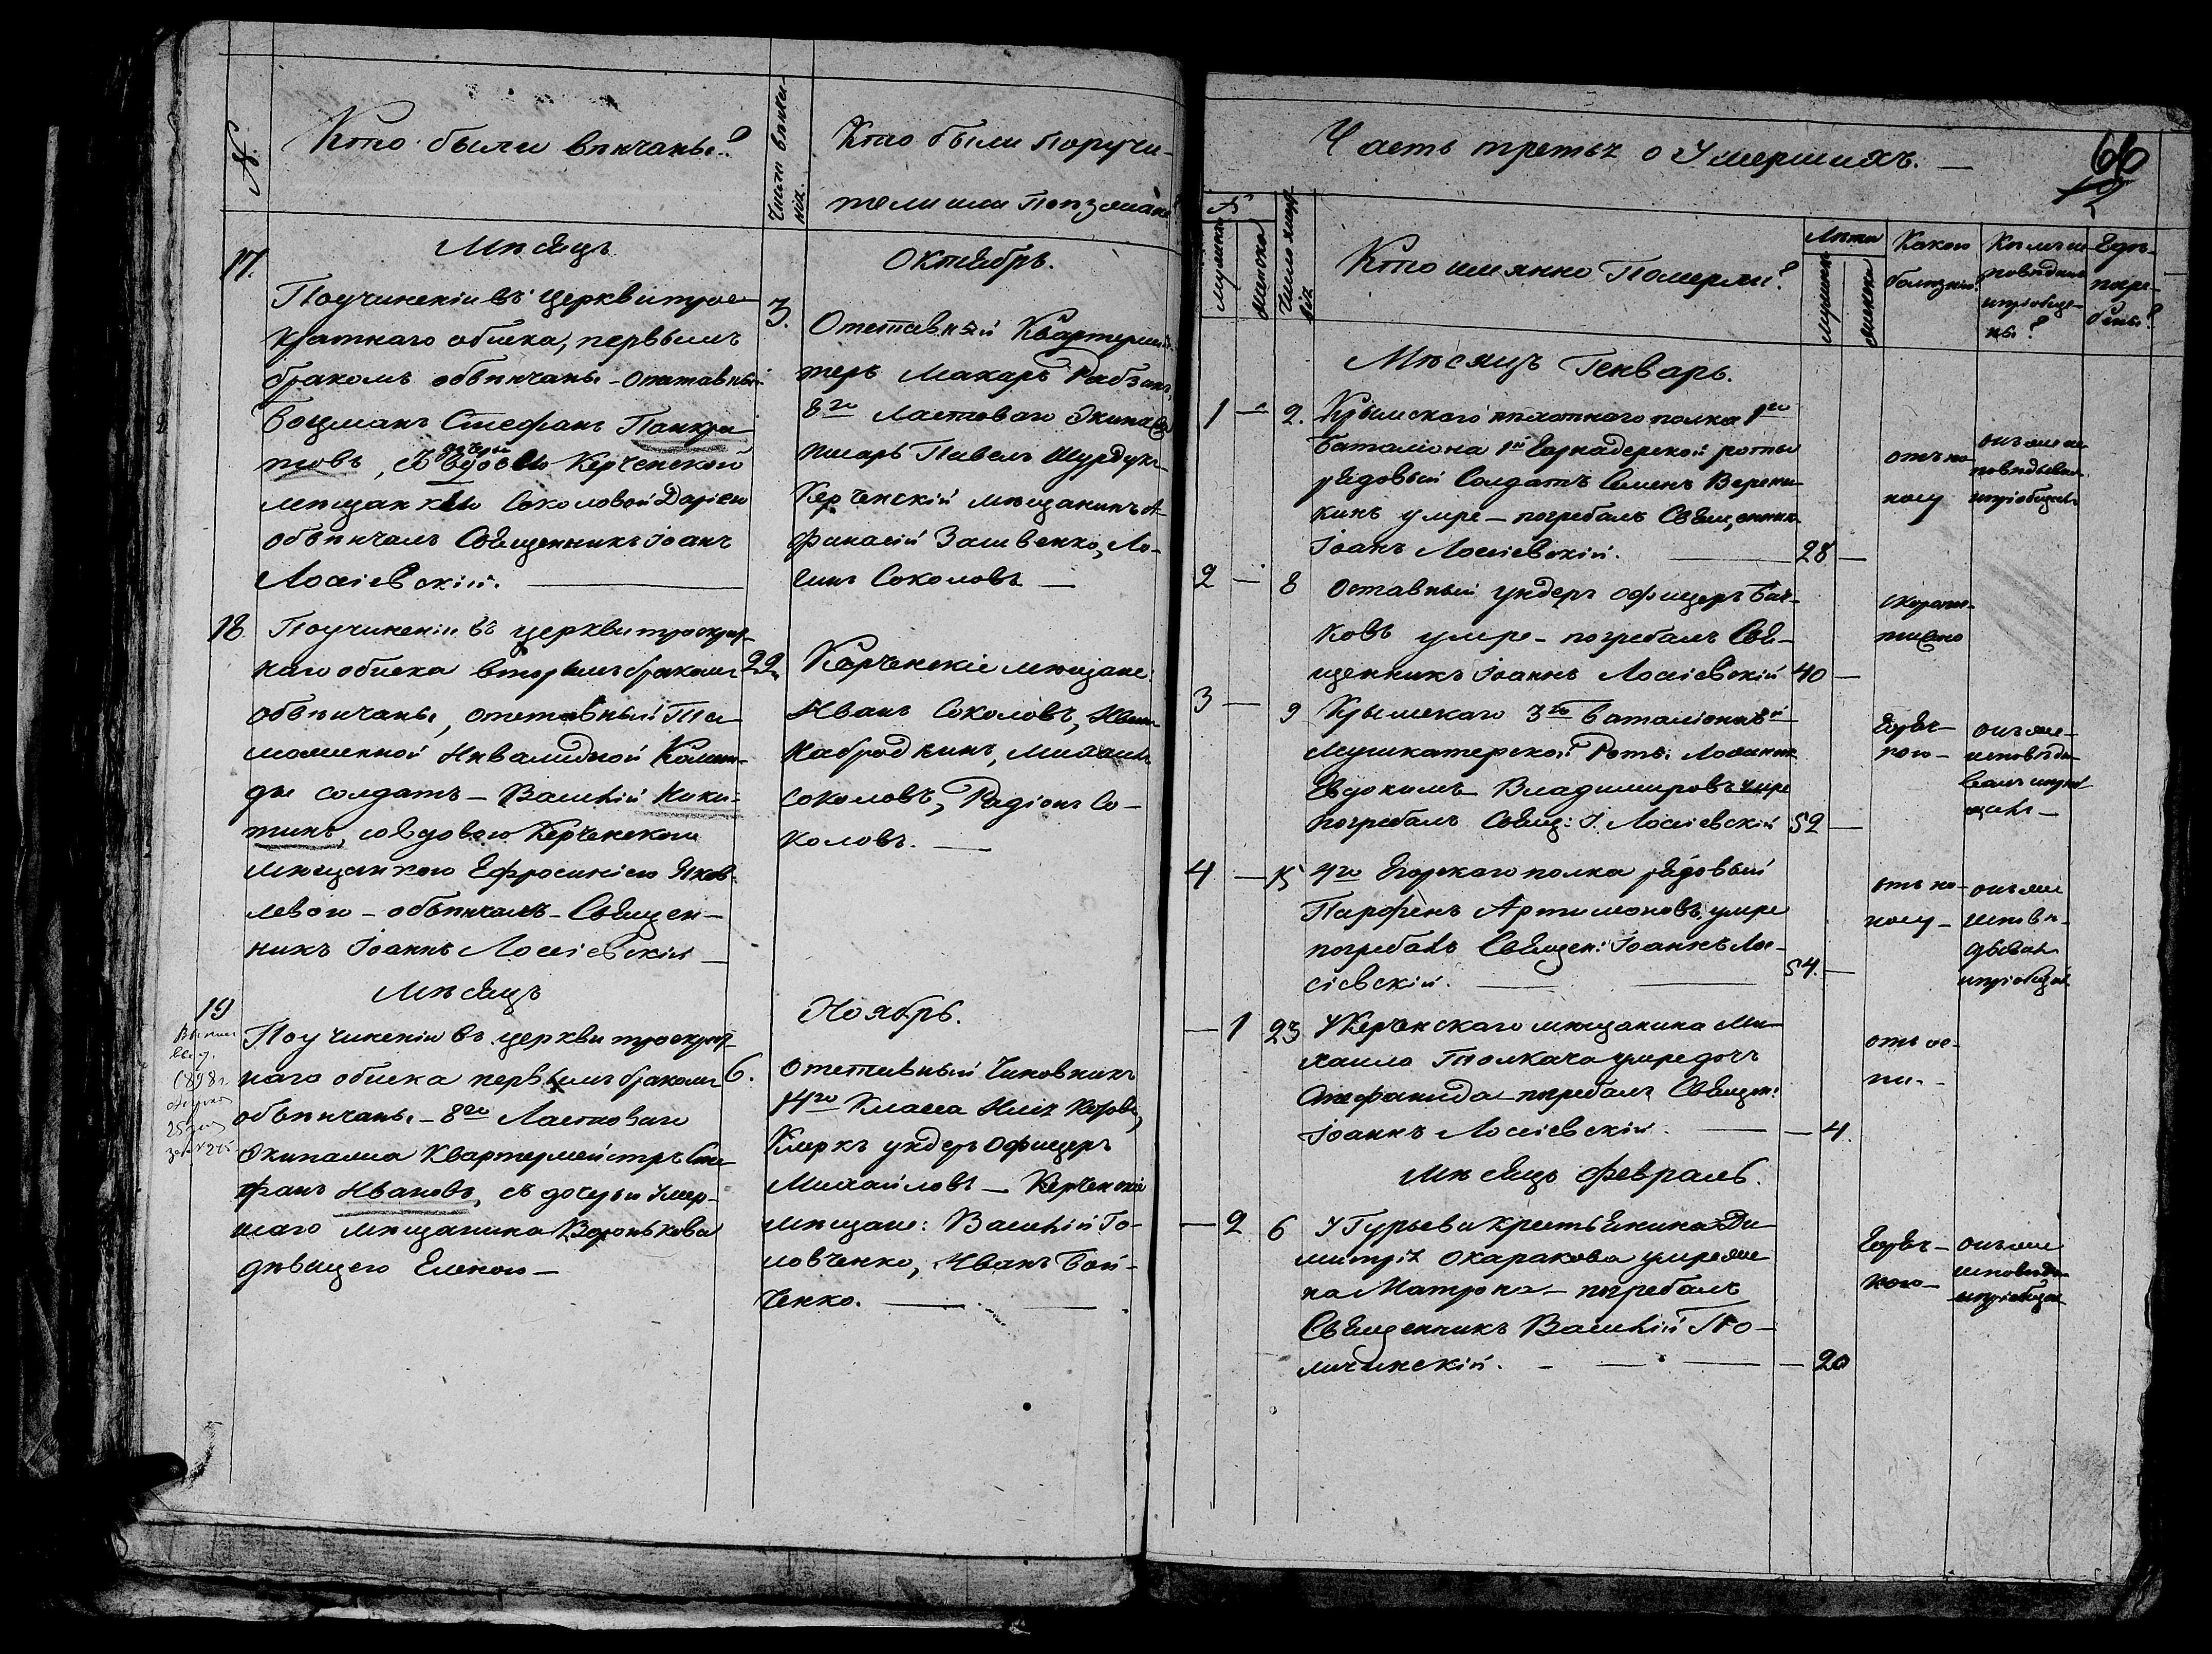 №
Кто были венчаны?
Число венчанія.
Кто были Поручи-
тели или Поезжане
Месяцъ
Октябрь.
17.
По учиненіи въ церкви трое
кратнаго обыска, первымъ
бракомъ обвенчаны - отставный
Боцманъ Стефанъ Панкра
товъ, съ дочерью Керченской
мещанкы Соколовой Даріею
обвенчалъ Священникъ Іоанъ
Лосіевскій.
3.
Отставный Квартермис-
теръ Макаръ
8го Ластоваго Экипажа
писарь Павелъ
Керченскій мещанинъ А-
фанасій Зашивенко, Ло-
гинъ Соколовъ
18
По учиненіи въ церкви троекрат-
наго обыска вторымъ бракомъ
обвенчаны, отставный Та
моженной Инвалидной Коман-
ды солдатъ - Василій Ники-
тинъ, со вдовою Керченскою
мещанкою Ефросиніею Яков-
левою - обвенчалъ - Священ-
никъ Іоаннъ Лосіевскій
22
Керченскіе мещане:
Иванъ Соколовъ, Иванъ
Набродкинъ, Михаилъ
Соколовъ, Радіонъ Со-
коловъ.
Месяцъ
Ноябрь.
19
1898 г.
По учиненіи въ церкви троекрат-
наго обыска первымъ бракомъ
обвенчаны - 8го Ластоваго
Экипажа Квартермейстръ Сте
фанъ Ивановъ, съ дочерью умер-
шаго мещанина Воронькова
девицею Еленою -
6.
Отставный Чиновникъ
14го Класса Илія
Клеркъ ундеръ офицеръ
Михайловъ - Керченскіе
мещане: Василій Го-
ловченко, Иванъ Бой-
ченко.
Часть третья о Умершихъ.
66
№
мужеска
женска
Число
Кто имянно Померли?
Лета
мужеска
женска
Какою
болезнію?
Кемъ ис-
поведаны
и пріобще-
ны?
Где
погре-
бены?
Месяцъ Генварь.
1 - 2. Крымскаго пехотнаго полка 1го
Баталіона 1й Гарнадерской роты
рядовый Солдатъ Семенъ
кинъ умре - погребалъ Священникъ
Іоанъ Лосіевскій. 28 -
отъ по-
носу
онъ же ис
поведывал
и пріобщалъ
2 - 8 Оставный ундеръ офицеръ Бач-
ковъ умре - погребалъ Свя-
щенникъ Іоаннъ Лосіевскій 40 -
скоропос-
тижно
3 - 9 Крымскаго 3го баталіона й
Мушкатерской Роты
Евдокимъ Владимировъ умре
погребалъ Свящ: І. Лосіевскій 52 -
Горяч-
кою -
онъ же -
исповеды-
валъ и прі
щалъ -
4 - 15 4го Егорскаго полка рядовый
Парфенъ Артимоновъ умре
погребалъ Священ: Іоаннъ Ло-
сіевскій. 54. -
отъ по-
носу -
онъ же
испове-
дывалъ
и пріобщал
- 1 23 У Керченскаго мещанина Ми-
хаила Толкача умре дочь
Стефанида погребалъ Священ:
Іоаннъ Лосіевскій. - 4.
отъ ос-
пы -
Месяцъ Февраль.
- 2 6 У Гурьева крестьянина Ди
митрія Охаракова умре же
на Матрона - погребалъ
Священникъ Василій По-
личинскій. - 20
Горяч-
кою -
онъ же
исповеды
и пріобщал